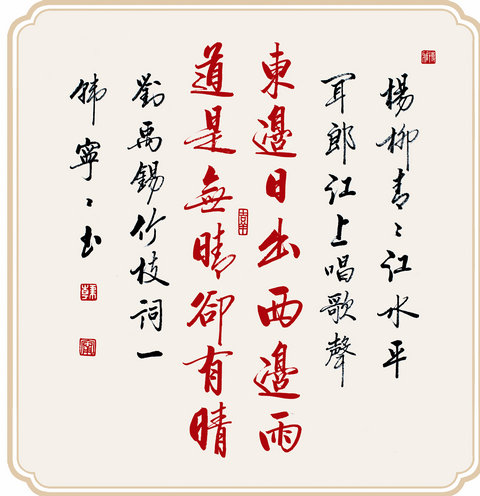 楊柳青〻江水平
聞郎江上唱歌聲
東邊日出西邊雨
道是無晴卻有晴
劉禹錫竹枝詞一
韓寧〻書